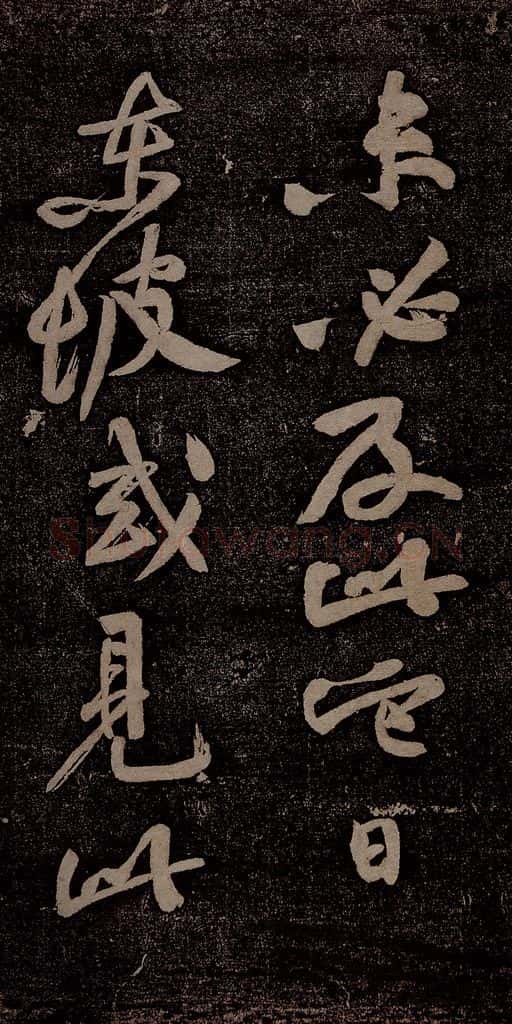 未必及此它日
東坡或見此
Shufawang.CN